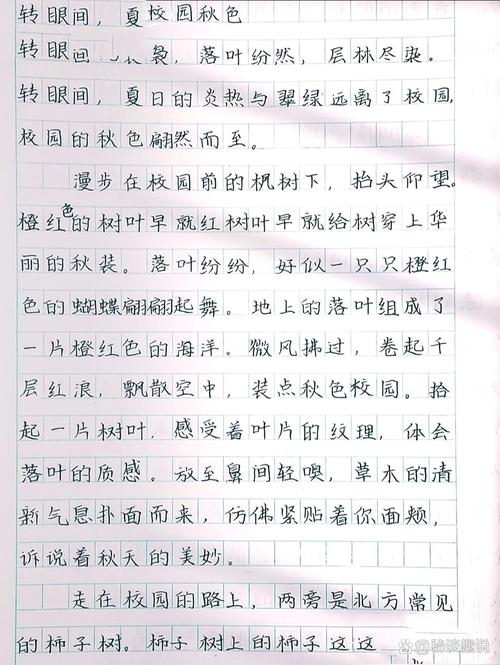 转眼间，夏校园秋色
转眼间 袅，落叶纷然，层林尽染。
转眼间，夏日的炎热与翠绿远离了校园，
校园的秋色翩然而至。
漫步在校园前的枫树下，抬头仰望。
橙红色的树叶早就红树叶早就给树穿上华
丽的秋装。落叶纷纷，好似一只只橙红
色的蝴蝶翩翩起舞。地上的落叶组成了
一片橙红色的海洋。微风拂过，卷起千
层红浪，飘散空中，装点秋色校园。拾
起一片树叶，感受着叶片的纹理，体会
落叶的质感。放至鼻间轻嗅，草木的清
新气息扑面而来，仿佛紧贴着你面颊，
诉说着秋天的美妙。
走在校园的路上，两旁是北方常见
的柿子树。柿子树上的柿子这这